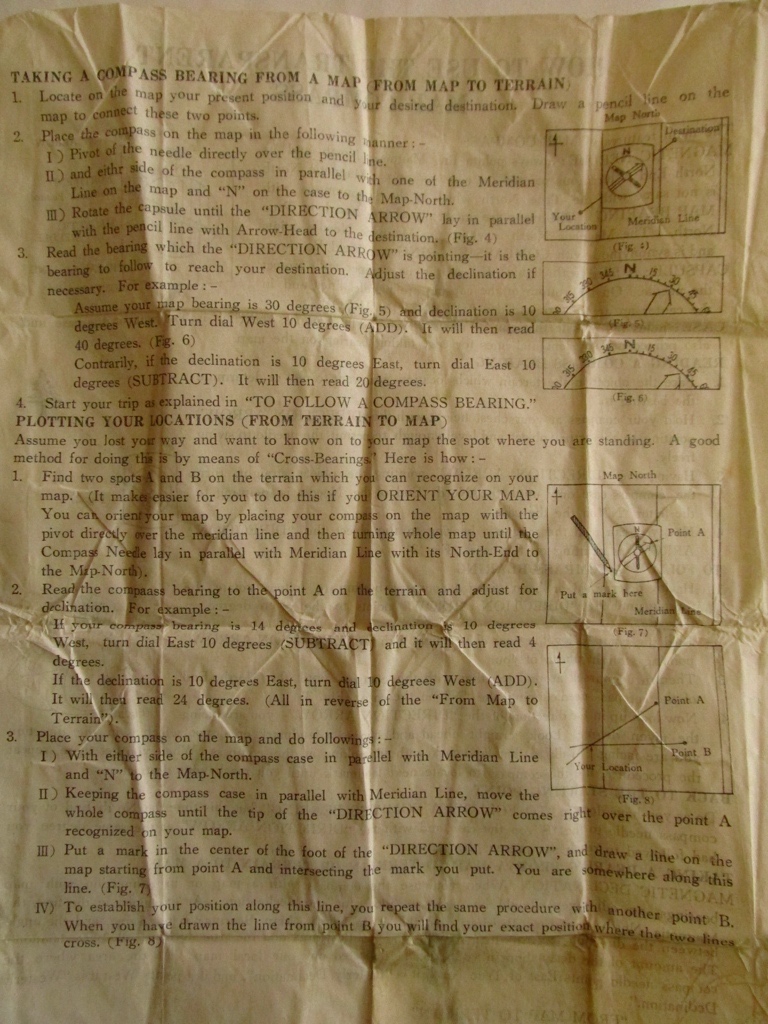 TAKING A COMPASS BEARING FROM A MAP (FROM MAP TO TERRAIN)
1. Locate on the map your present position and your desired destination. Draw a pencil line on the
map to connect these two points.
2. Place the compass on the map in the following manner : -
I ) Pivot of the needle directly over the pencil line.
II ) and eithr side of the compass in parallel with one of the Meridian
Line on the map and "N" on the case to the Map-North.
III ) Rotate the capsule until the "DIRECTION ARROW" lay in parallel
with the pencil line with Arrow-Head to the destination. (Fig. 4)
3. Read the bearing which the "DIRECTION ARROW" is pointing—it is the
bearing to follow to reach your destination. Adjust the declination if
necessary. For example : -
Assume your map bearing is 30 degrees (Fig. 5) and declination is 10
degrees West. Turn dial West 10 degrees (ADD). It will then read
40 degrees. (Fig. 6)
Contrarily, if the declination is 10 degrees East, turn dial East 10
degrees (SUBTRACT). It will then read 20 degrees.
4. Start your trip as explained in "TO FOLLOW A COMPASS BEARING."
Map North
Destination
Your
Location
Meridian Line
(Fig. 4)
35 30 345 N 15 30 45
(Fig. 5)
315 30 345 N 15 30 45
(Fig. 6)
PLOTTING YOUR LOCATIONS (FROM TERRAIN TO MAP)
Assume you lost your way and want to know on to your map the spot where you are standing. A good
method for doing this is by means of "Cross-Bearings." Here is how : -
1. Find two spots A and B on the terrain which you can recognize on your
map. (It makes easier for you to do this if you ORIENT YOUR MAP.
You can orient your map by placing your compass on the map with the
pivot directly over the meridian line and then turning whole map until the
Compass Needle lay in parallel with Meridian Line with its North-End to
the Map-North).
2. Read the compaass bearing to the point A on the terrain and adjust for
declination. For example : -
If your compass bearing is 14 degrees and declination is 10 degrees
West, turn dial East 10 degrees (SUBTRACT) and it will then read 4
degrees.
If the declination is 10 degrees East, turn dial 10 degrees West (ADD).
It will then read 24 degrees. (All in reverse of the "From Map to
Terrain").
3. Place your compass on the map and do followings : -
I ) With either side of the compass case in parellel with Meridian Line
and "N" to the Map-North.
II ) Keeping the compass case in parallel with Meridian Line, move the
whole compass until the tip of the "DIRECTION ARROW" comes right over the point A
recognized on your map.
III) Put a mark in the center of the foot of the "DIRECTION ARROW", and draw a line on the
map starting from point A and intersecting the mark you put. You are somewhere along this
line. (Fig. 7)
IV) To establish your position along this line, you repeat the same procedure with another point B.
When you have drawn the line from point B you will find your exact position where the two lines
cross. (Fig. 8)
Map North
N
Point A
Put a mark here
Meridian Line
(Fig. 7)
Point A
Point B
Your Location
(Fig. 8)